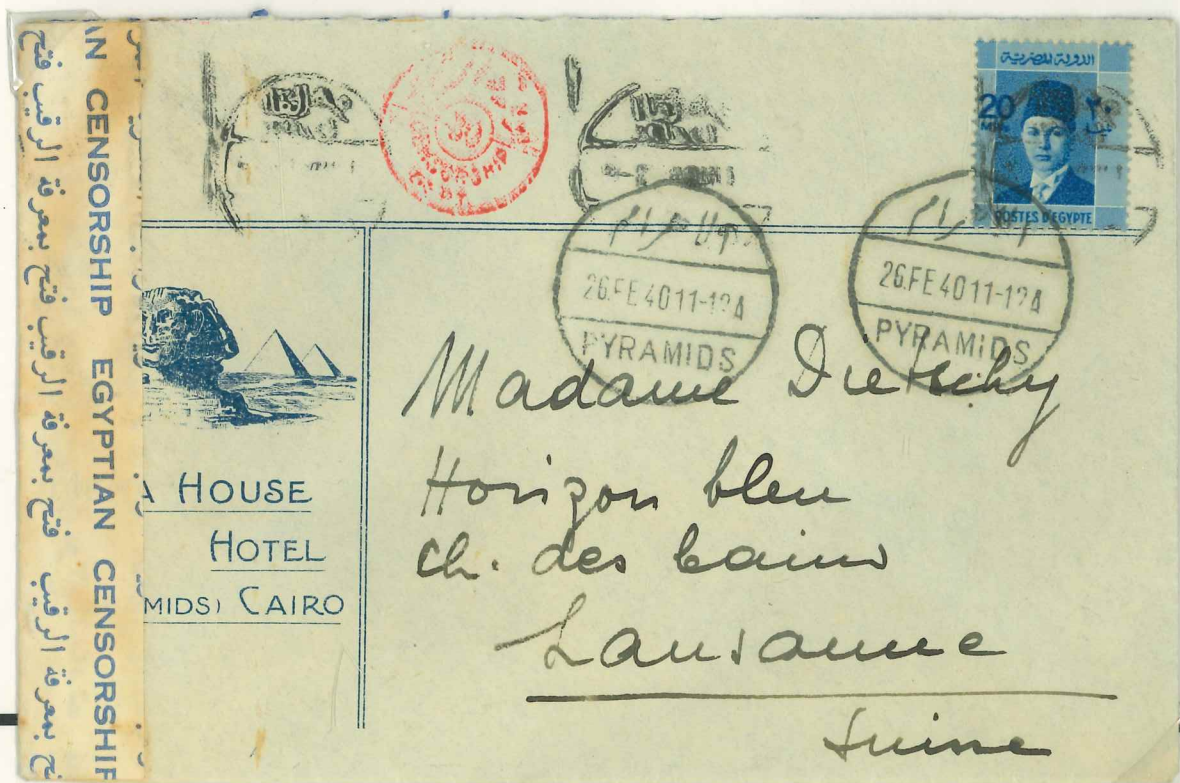 AN CENSORSHIP EGYPTIAN CENSORSHIP
فتح بمعرفة الرقيب فتح بمعرفة الرقيب فتح بمعرفة الرقيب فتح
CENSORSHIP
الدولة المصرية
20
MILL
٢٠
POSTES D'EGYPTE
26.FE 40 11-12A
PYRAMIDS
26.FE 40 11-12A
PYRAMIDS
A HOUSE
HOTEL
MIDS) CAIRO
Madame Dietschy
Horizon bleu
Ch. des bains
Lausanne
Suisse